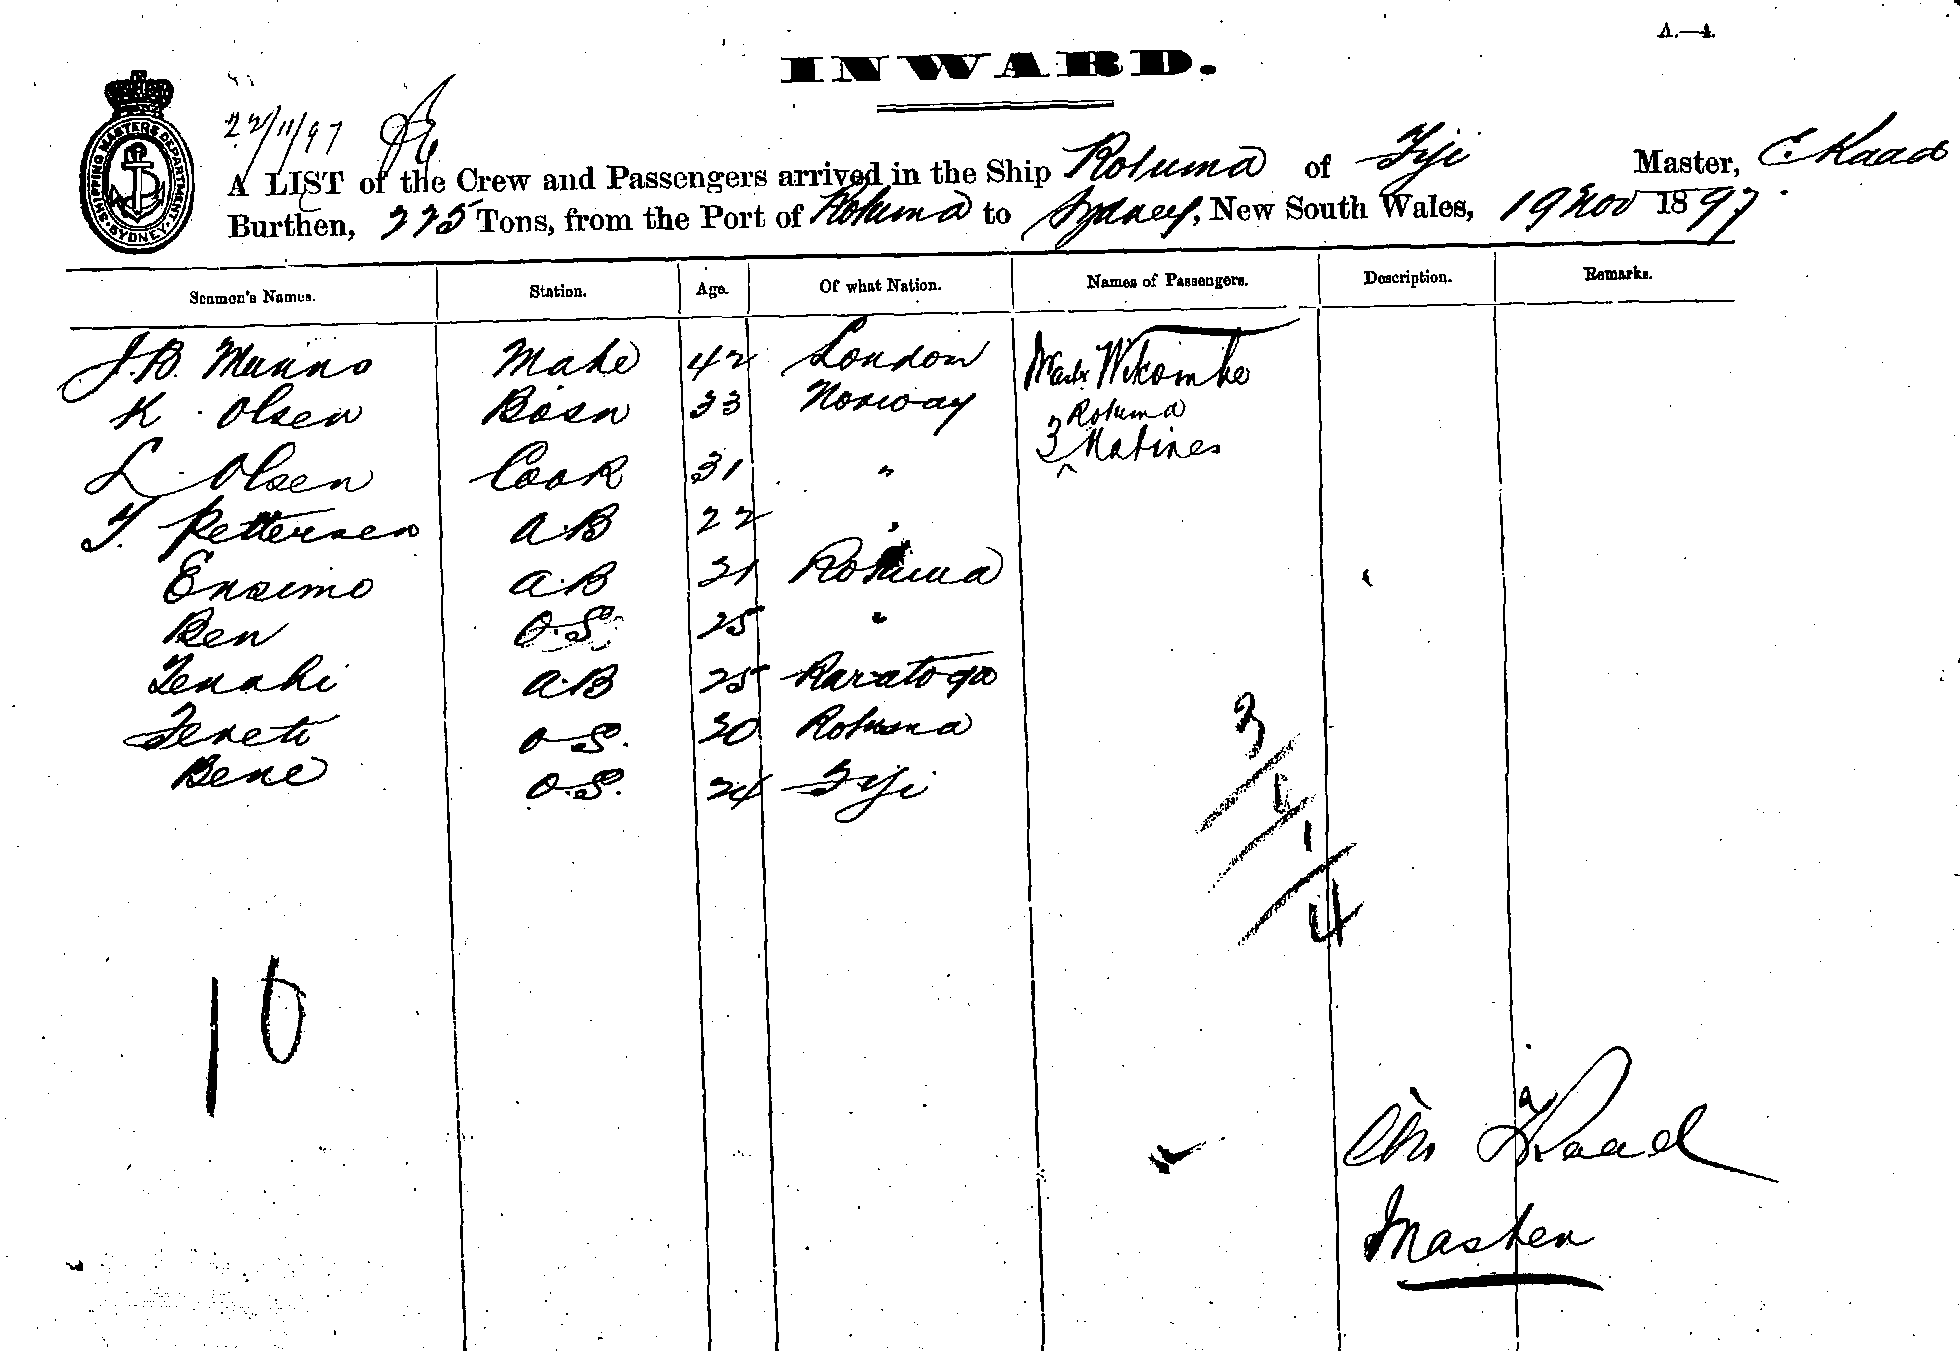 A.—4.
INWARD.
SHIPPING MASTERS DEPARTMENT SYDNEY
22/11/97
A LIST of the Crew and Passengers arrived in the Ship Rotuma of Fiji Master, C. Kaad
Burthen, 225 Tons, from the Port of Rotuma to Sydney, New South Wales, 19 Nov 1897.
Seamen's Names. Station. Age. Of what Nation. Names of Passengers. Description. Remarks.
J. B. Munro Mate 42 London Wikombe
K. Olsen Bosn 33 Norway Rotuma
3 Natives
L. Olsen Cook 31 "
T. Pettersen A.B 22 "
Ensimo A.B 31 Rotuma
Ben O.S. 25 "
Tenahi A.B 25 Raratoga
O.S. 20 Rotuma
Bene O.S. 24 Fiji
3
1
1
4
10
Chr Kaad
Master